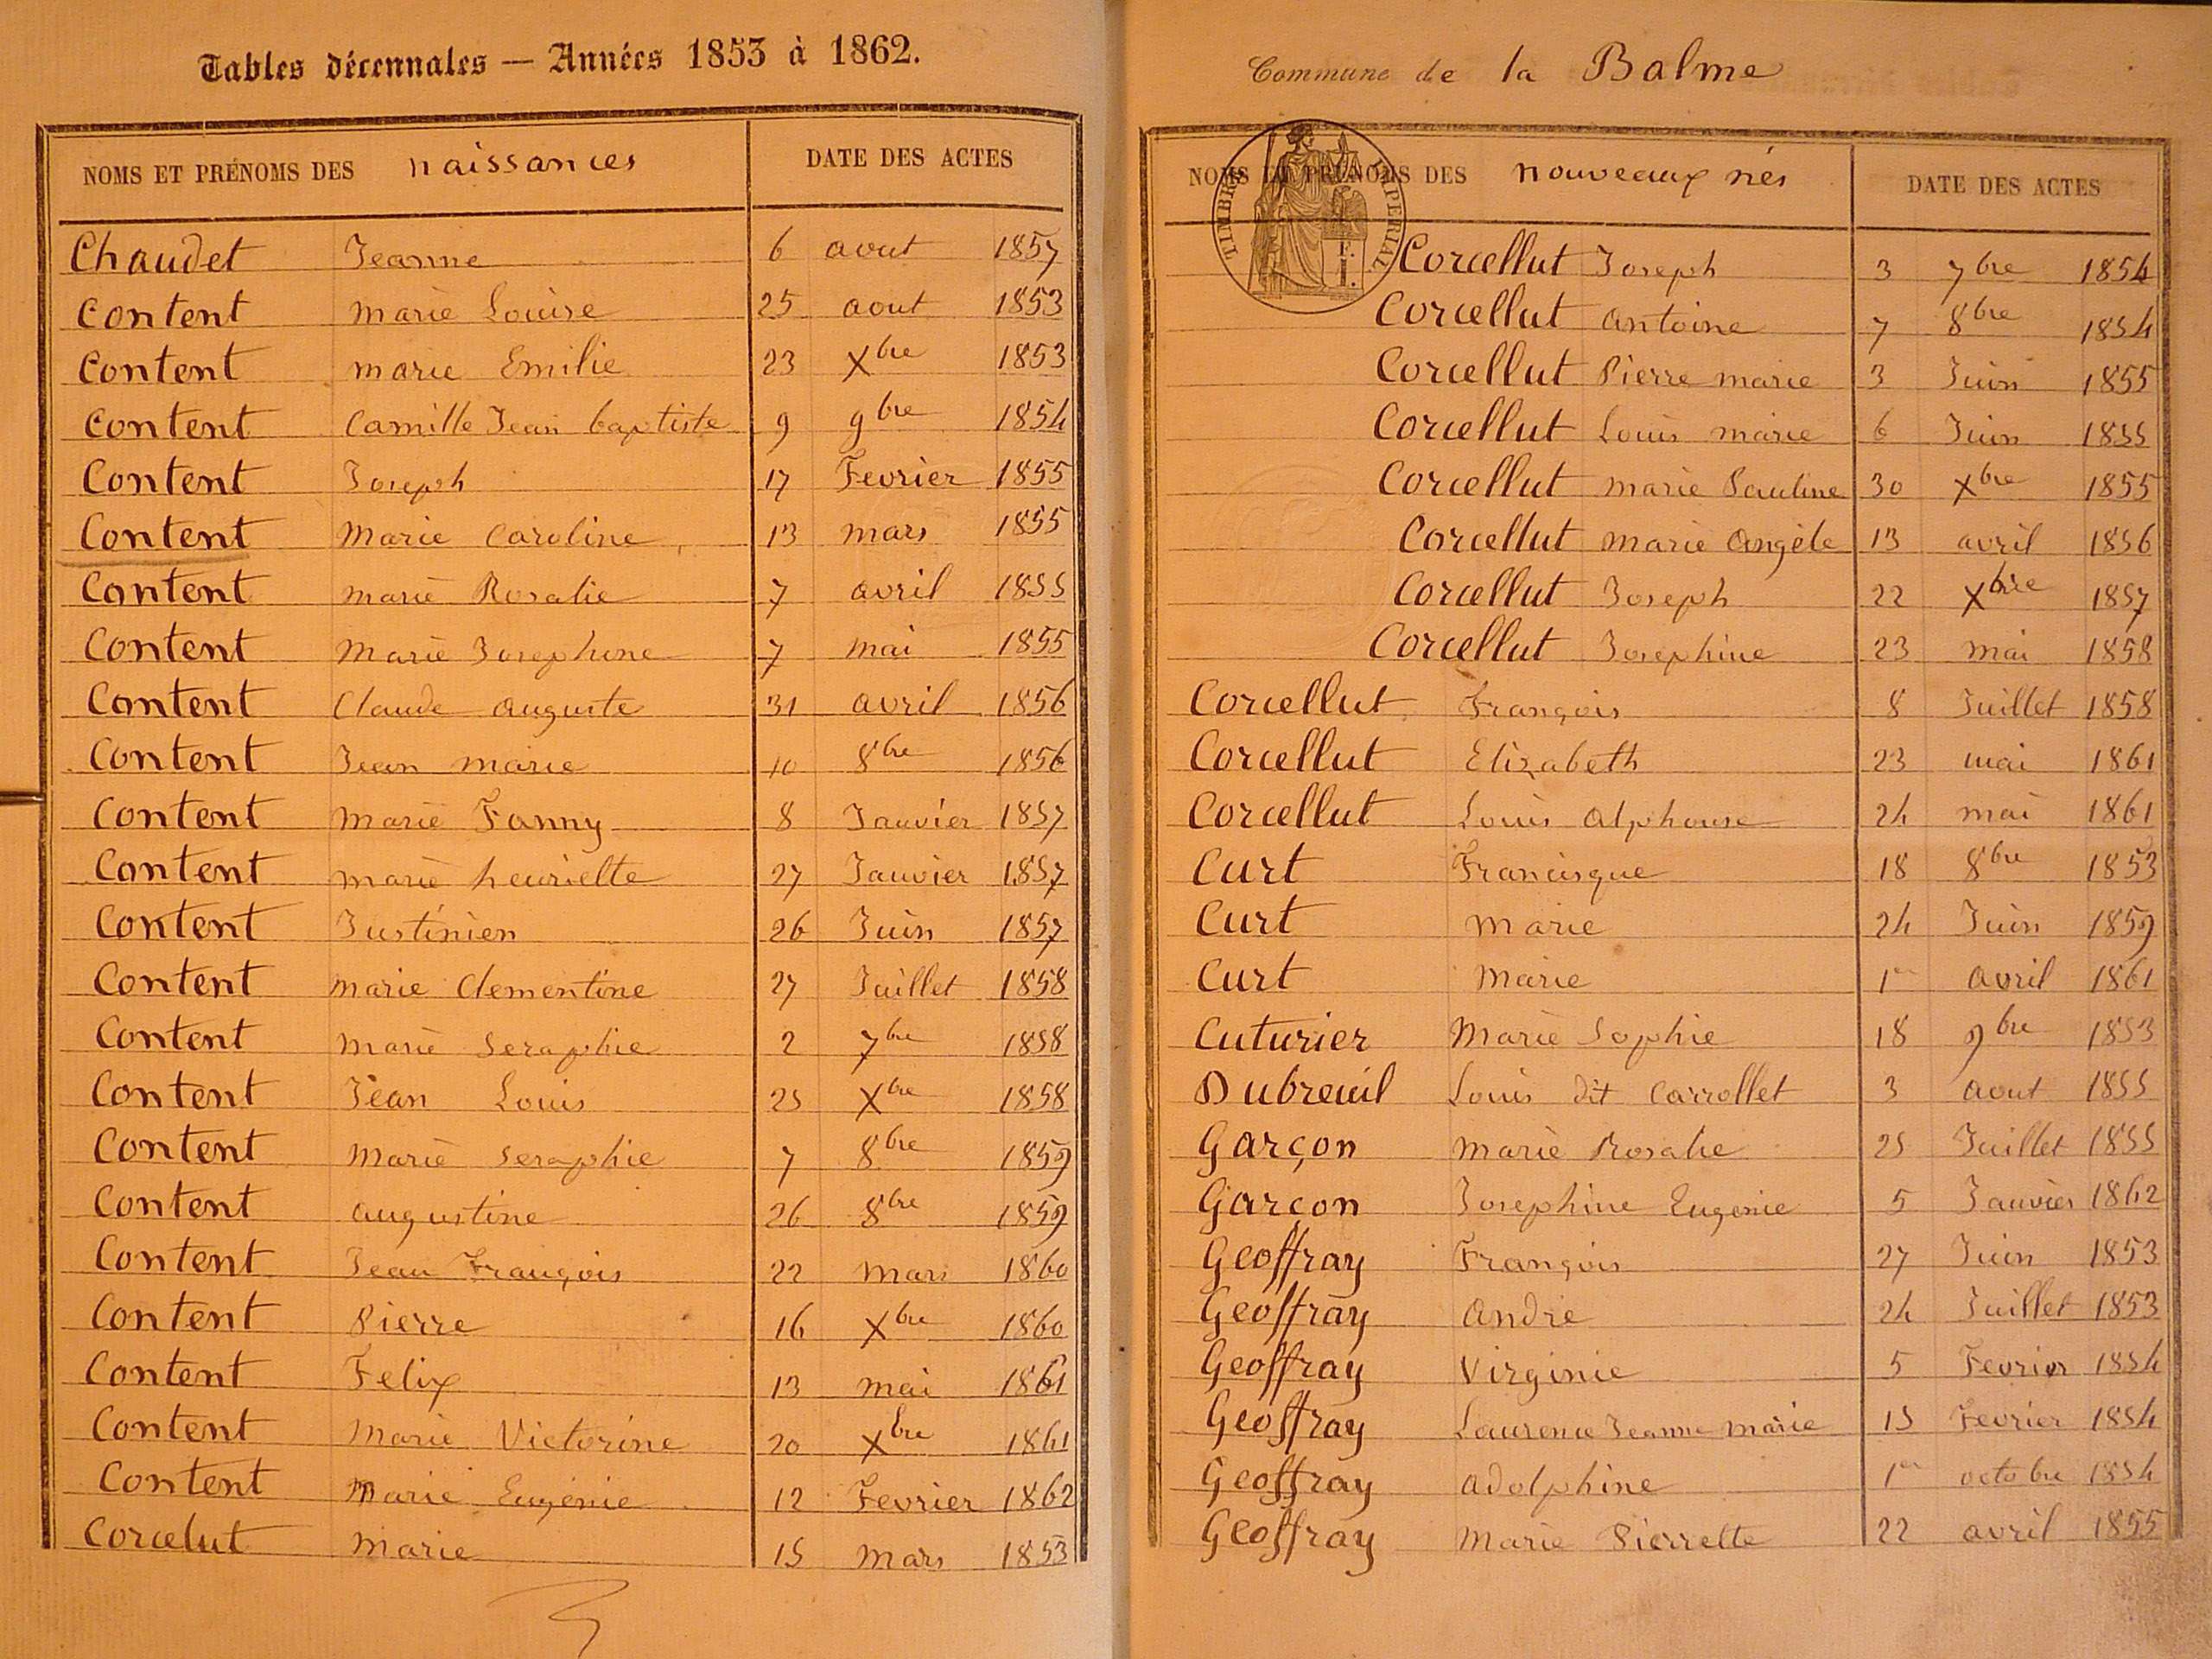 Tables décennales — Années 1853 à 1862.
NOMS ET PRÉNOMS DES naissances DATE DES ACTES
Chaudet Jeanne 6 aout 1857
Content marie Louise 25 aout 1853
Content marie Emilie 23 Xbre 1853
Content Camille Jean baptiste 9 9bre 1854
Content Joseph 17 Fevrier 1855
Content Marie Caroline 13 mars 1855
Content marie Rosalie 7 avril 1855
Content Marie Josephine 7 mai 1855
Content Claude auguste 31 avril 1856
Content Jean marie 10 8bre 1856
Content Marie Fanny 8 Janvier 1857
Content marie henriette 27 Janvier 1857
Content Justinien 26 Juin 1857
Content marie Clementine 27 Juillet 1858
Content marie Seraphie 2 7bre 1858
Content Jean Louis 25 Xbre 1858
Content Marie Seraphie 7 8bre 1859
Content augustine 26 8bre 1859
Content Jean François 22 mars 1860
Content Pierre 16 Xbre 1860
Content Felix 13 mai 1861
Content Marie Victorine 20 Xbre 1861
Content Marie Eugénie 12 Fevrier 1862
Corcelut Marie 15 mars 1853
Commune de la Balme
NOMS ET PRÉNOMS DES nouveaux nés DATE DES ACTES
TIMBRE IMPERIAL
Corcellut Joseph 3 7bre 1854
Corcellut antoine 7 8bre 1854
Corcellut Pierre marie 3 Juin 1855
Corcellut Louis marie 6 Juin 1855
Corcellut marie Pauline 30 Xbre 1855
Corcellut marie Angèle 13 avril 1856
Corcellut Joseph 22 Xbre 1857
Corcellut Josephine 23 mai 1858
Corcellut François 8 Juillet 1858
Corcellut Elizabeth 23 mai 1861
Corcellut Louis Alphonse 24 mai 1861
Curt Francisque 18 8bre 1853
Curt marie 24 Juin 1859
Curt Marie 1er avril 1861
Cuturier Marie Sophie 18 9bre 1853
Dubreuil Louis dit Carrollet 3 aout 1855
Garçon Marie Rosalie 25 Juillet 1855
Garçon Josephine Eugenie 5 Janvier 1862
Geoffray François 27 Juin 1853
Geoffray Andre 24 Juillet 1853
Geoffray Virginie 5 Fevrier 1854
Geoffray Laurence Jeanne Marie 15 Fevrier 1854
Geoffray adolphine 1er octobre 1854
Geoffray Marie Pierrette 22 avril 1855